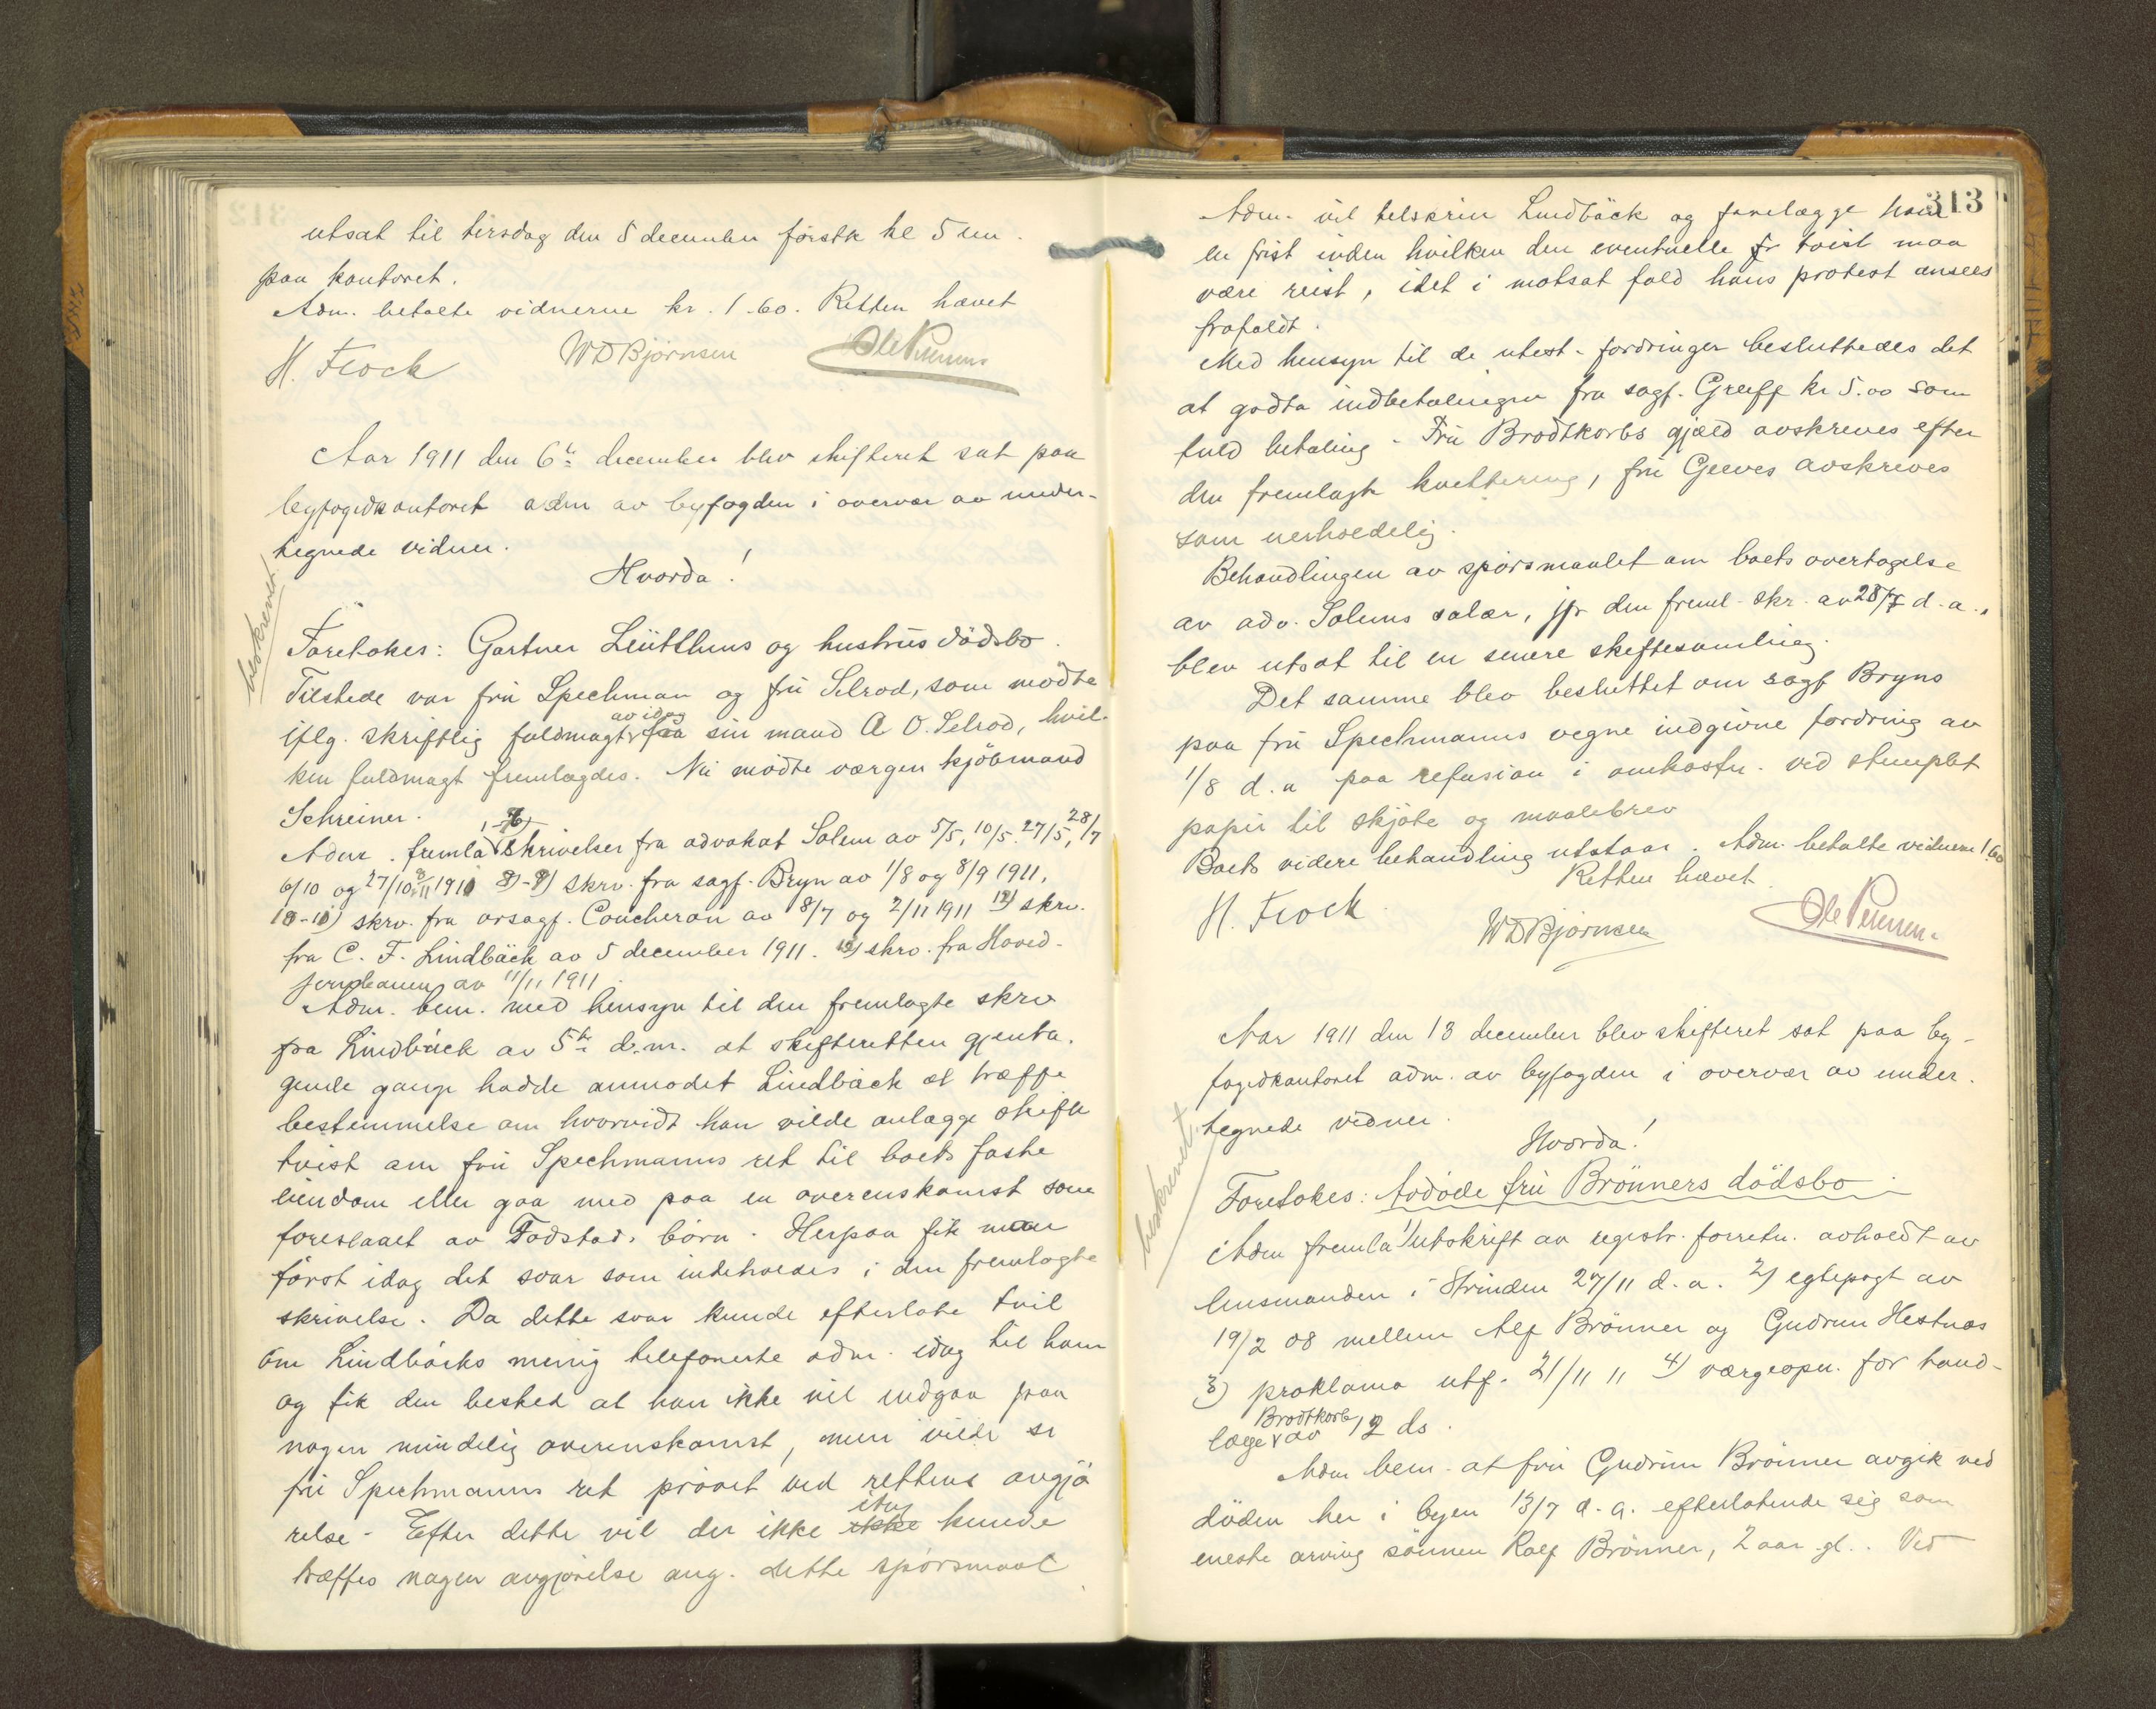 utsat til tirsdag den 5 december førstk kl 5 em.
paa kontoret.
Adm. betalte vidnerne kr. 1.60. Retten hævet
H. Frock W D Bjørnsen
Aar 1911 den 6te december blev skifteret sat paa
byfogedkontoret adm av byfogden i overvær av under-
tegnede vidner.
Hvorda!
beskrevet.
Foretokes: Gartner Leütthuns og hustrus dödsbo.
Tilstede var frü Spechman og frü Selrod, som mödte
av idag
iflg. skriftlig fuldmagt fra sin mand A O. Selrod, hvil-
ken fuldmagt fremlagdes. Nü mödte vægen kjöbmand
Schreiner.
Adm. fremla skrivelser fra advokat Solem av 5/5, 10/5. 27/5, 28/7
6/10 og 27/10 1911 8)-9) skrv. fra sagf. Bryn av 1/8 og 8/9 1911,
10-11) skrv. fra orsagf. Coucheron av 8/7 og 2/11 1911 12) skrv.
fra C. F. Lindbäck av 5 december 1911. 13) skrv. fra Hoved-
jernbanen av 11/11 1911.
Adm. bem. med hensyn til den fremlagte skrv
fra Lindbäck av 5te d.m. at skifteretten gjenta-
gende gange hadde anmodet Lindbäck at træffe
bestemmelse om hvorvidt han vilde anlægge skifte
tvist om frü Spechmanns ret til boets faste
eiendom eller gaa med paa en overenskomst som
foreslaaet av Fodstads børn. Herpaa fik man
først idag det svar som indeholdes i den fremlagte
skrivelse. Da dette svar kunde efterlate tvil
om Lindbäcks menig telefonerte adm. idag til ham
og fik den besked at han ikke vil indgaa paa
nogen mindelig overenskomst, men vilde se
frü Spechmanns ret prövet ved rettens avgjö
relse - Efter dette vil der ikke idag kunde
træffes nogen avgjørelse ang. dette spörsmaal
313
Adm. vil tilskrive Lindbäck og forelægge ham
en frist inden hvilken den eventuelle tvist maa
være reist, idet i motsat fald hans protest ansees
frafaldt.
Med hensyn til de utest. fordringer besluttedes det
at godta indbetalingen fra sagf. Greiff kr 5.00 som
fuld betaling - Frü Brodtkorbs gjæld avskreves efter
den fremlagte kvittering, frü Geeves avskreves
som uerholdelig.
Behandlingen av spörsmaalet om boets overtagelse
av adv. Solems salær, jfr den freml. skr. av 28/7 d.a.,
blev utsat til en senere skiftesamling.
Det samme blev besluttet om sagf Bryns
paa frü Spechmanns vegne indgivne fordring av
1/8 d.a paa refusion i omkostn. ved stemplet
papir til skjöte og maalebrev
Boets videre behandling utstaar. Adm. betalte vidnerne 1.60
Retten hævet.
H. Frock. W D Bjørnsen
Aar 1911 den 13 december blev skifteret sat paa by-
fogedkontoret adm. av byfogden i overvær av under-
tegnede vidner.
Hvorda!
beskrevet.
Foretokes: Avdöde frü Brönners dödsbo.
Adm fremla 1) utskrift av registr. forretn. avholdt av
lensmanden i Strinden 27/11 d.a. 2) egtepagt av
19/2 08 mellem Alf Brönner og Gudrun Hestnæs
3) proklama utf. 21/11 11 4) værgeopn. for tand-
Brodtkorb
læge av 12 ds.
Adm bem. at frü Gudrün Brönner avgik ved
döden her i byen 13/7 d.a. efterlatende sig som
eneste arving sönnen Rolf Brönner, 2 aar gl. . Ved